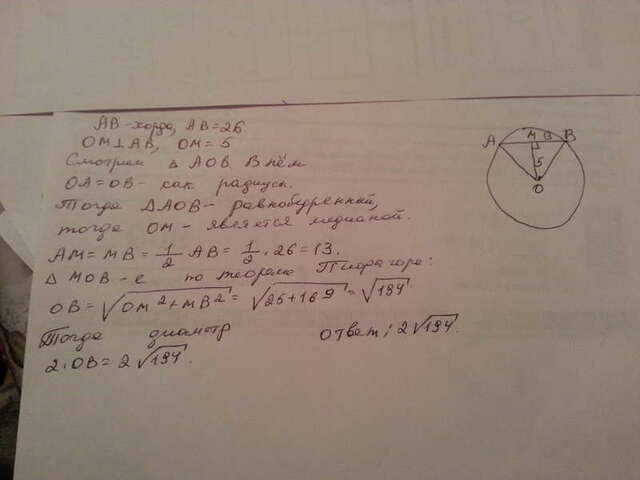 AB - хорда, AB = 26.
OM ⊥ AB, OM = 5
Смотрим △ AOB. В нём
OA = OB - как радиусы.
Тогда △AOB - равнобедренный,
тогда OM - является медианой.
AM = MB = 1/2 AB = 1/2 · 26 = 13.
△ MOB - по теореме Пифагора:
OB = √(OM² + MB²) = √(25 + 169) = √194
Тогда диаметр
2 · OB = 2√194.
Ответ: 2√194.
A
M
B
5
O